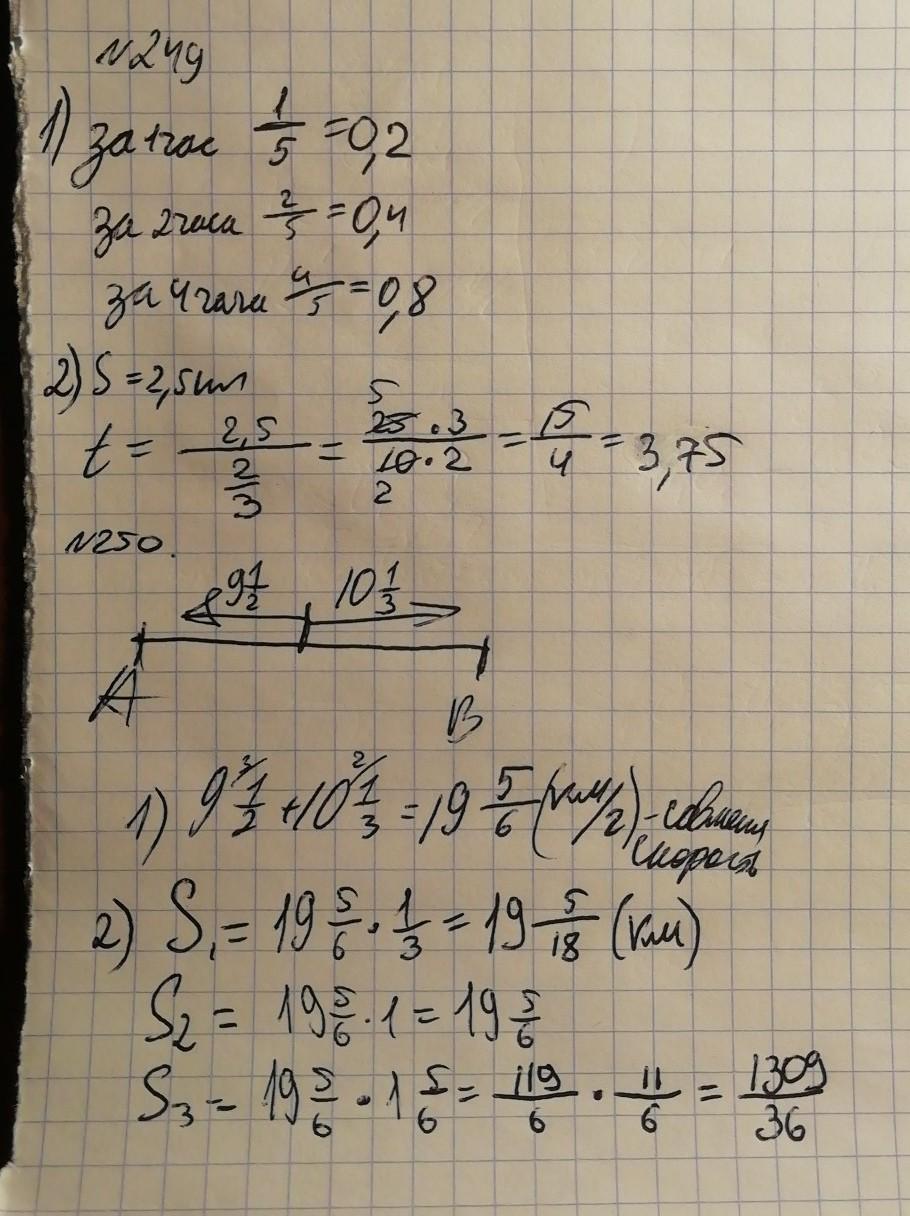 N249
1) за 1 час 1/5 = 0,2
за 2 часа 2/5 = 0,4
за 4 часа 4/5 = 0,8
2) S = 2,5 км
t = 2,5/(2/3) = (25·3)/(10·2) = 15/4 = 3,75
5
2
N250.
9 1/2 10 1/3
A B
1) 9 1/2 + 10 1/3 = 19 5/6 (км/г) -
3 2
2) S₁ = 19 5/6 · 1/3 = 19 5/18 (км)
S₂ = 19 5/6 · 1 = 19 5/6
S₃ = 19 5/6 · 1 5/6 = 119/6 · 11/6 = 1309/36